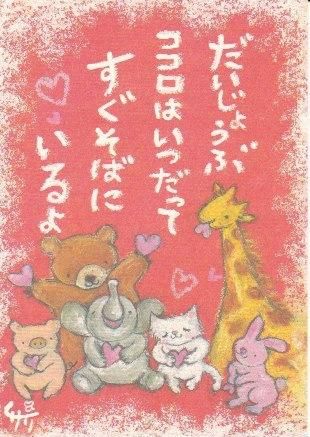 だいじょうぶ
ココロはいつだって
すぐそばに
いるよ